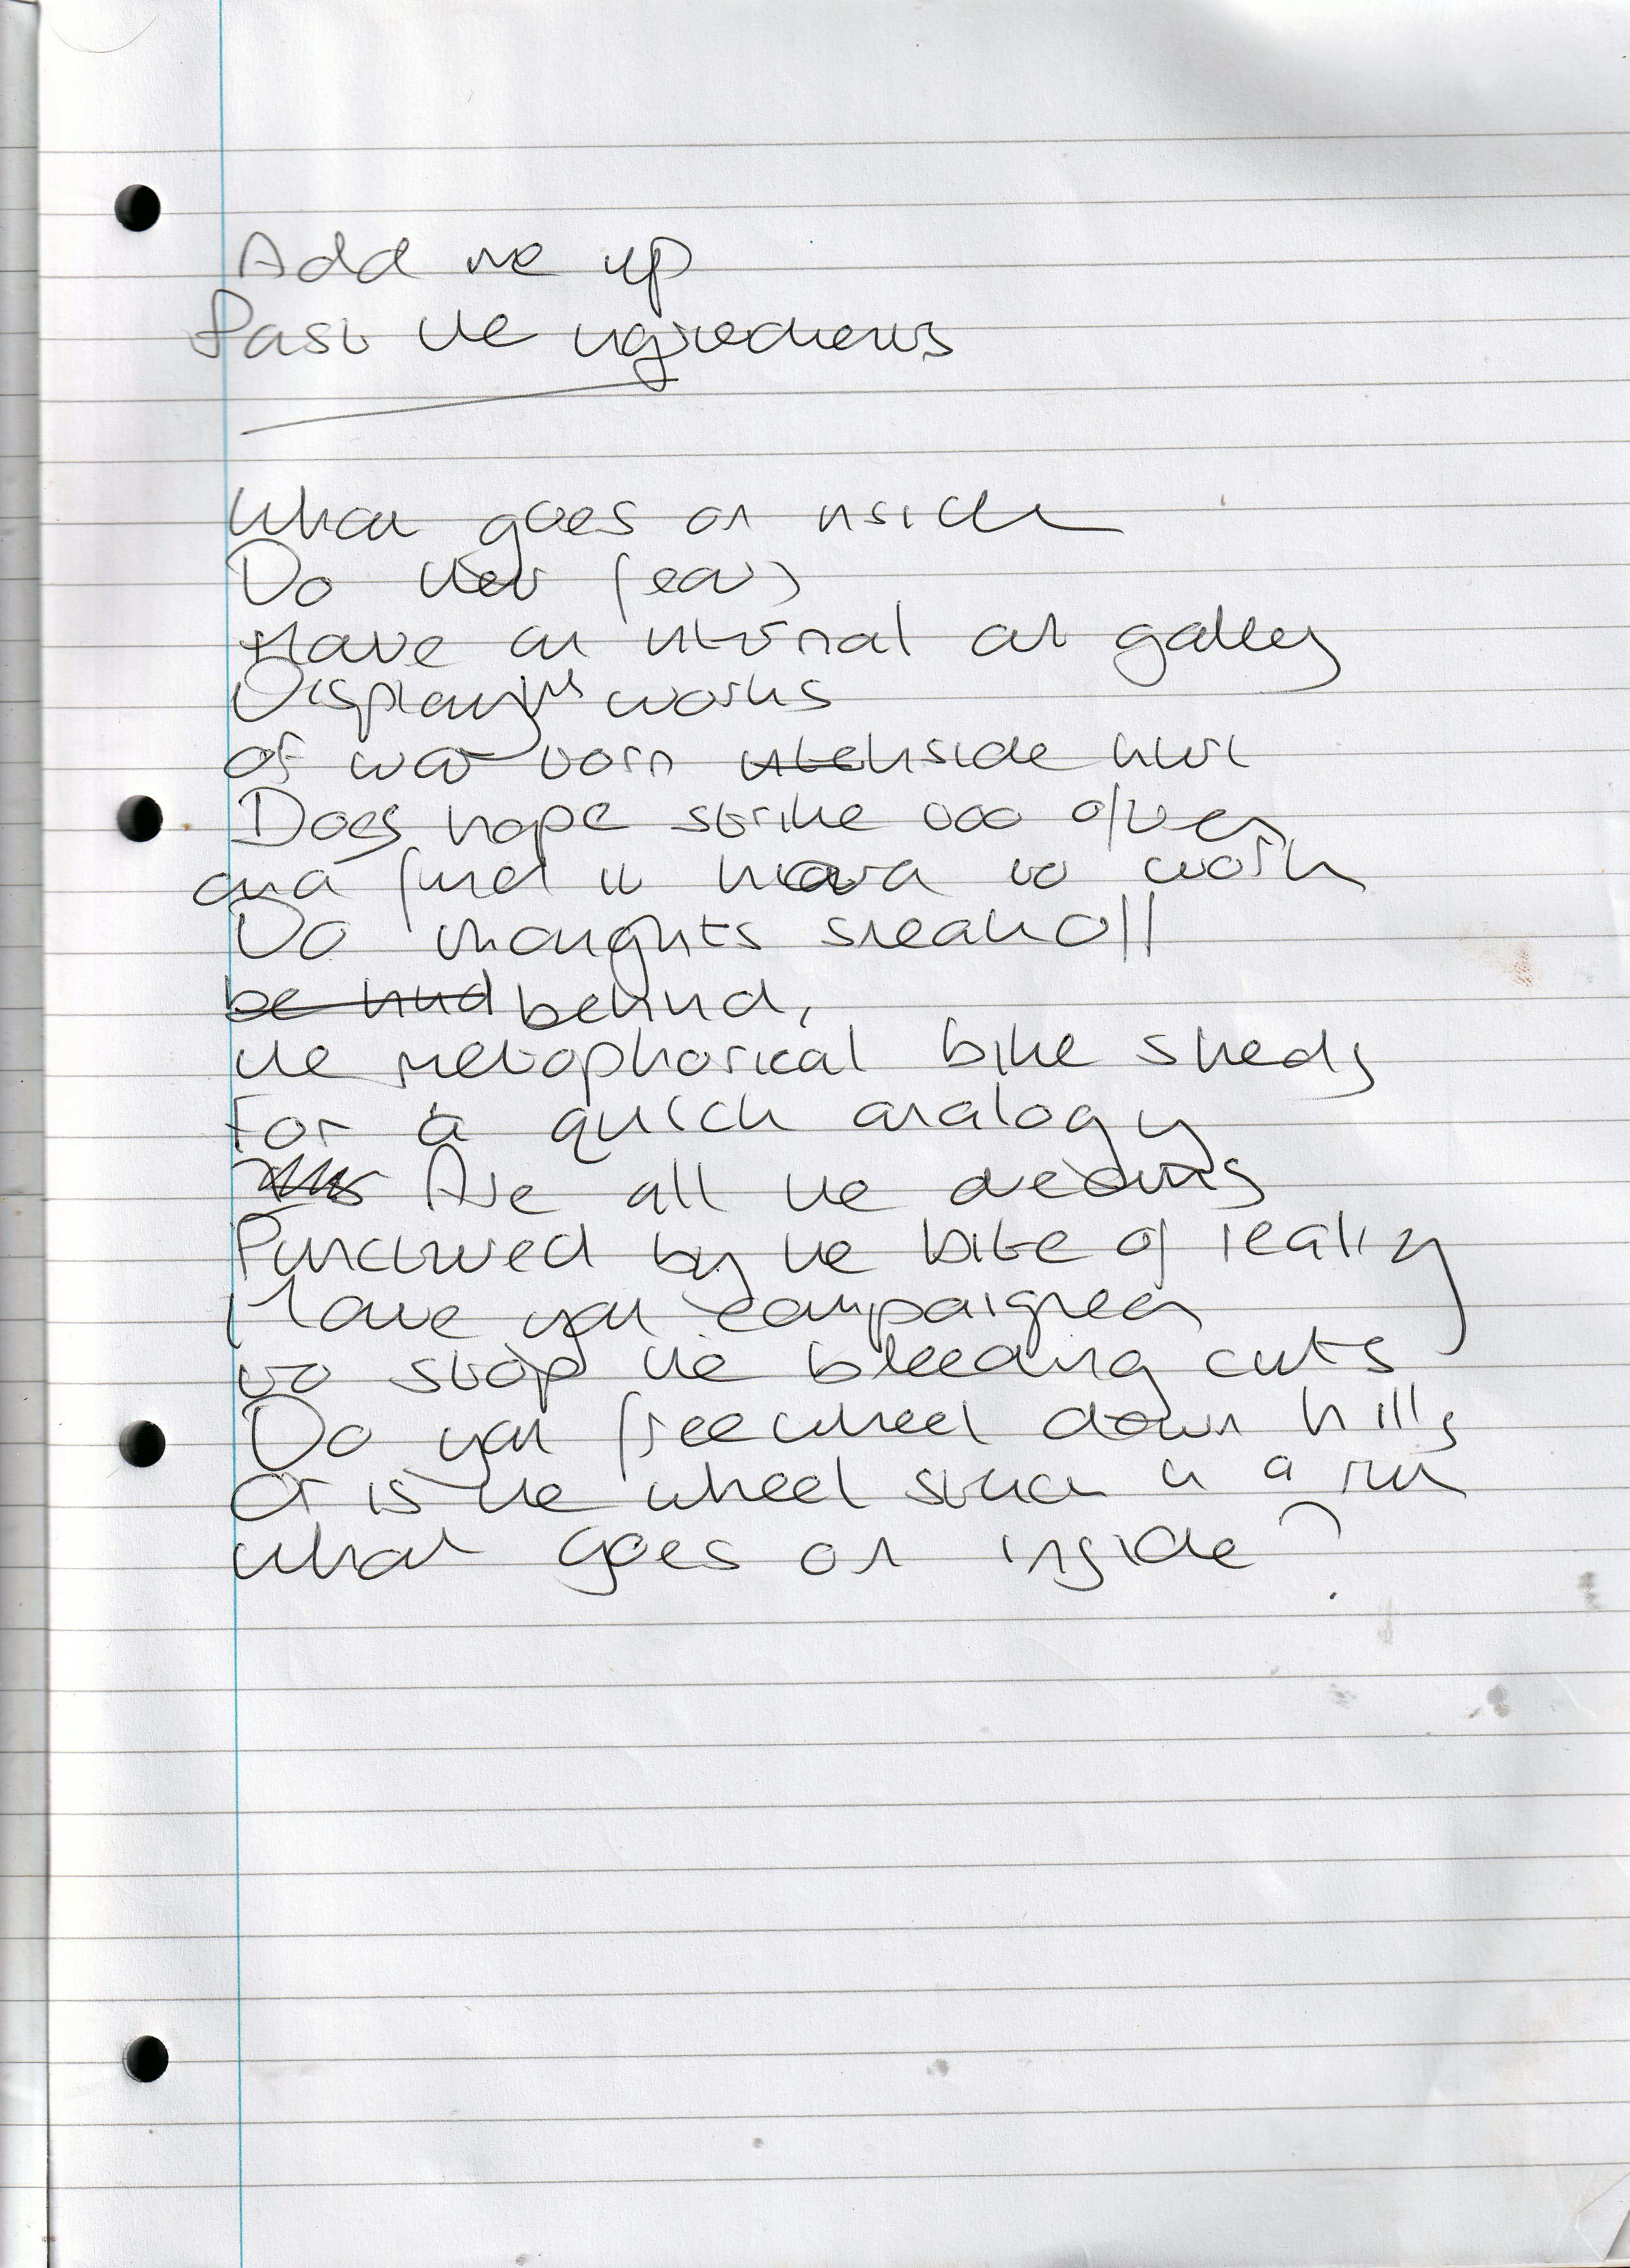 Add me up
Past the ingredients
What goes on inside
Do their fears
Have an internal art gallery
Displaying works
of war torn inside hurt
Does hope strike too often
and find it hard to work
Do thoughts sneak off
be hind behind,
the metaphorical bike sheds
For a quick analogy
Are all the dreams
Punctured by the bite of reality
Have you campaigned
to stop the bleeding cuts
Do you freewheel down hills
Or is the wheel stuck in a rut
what goes on inside?